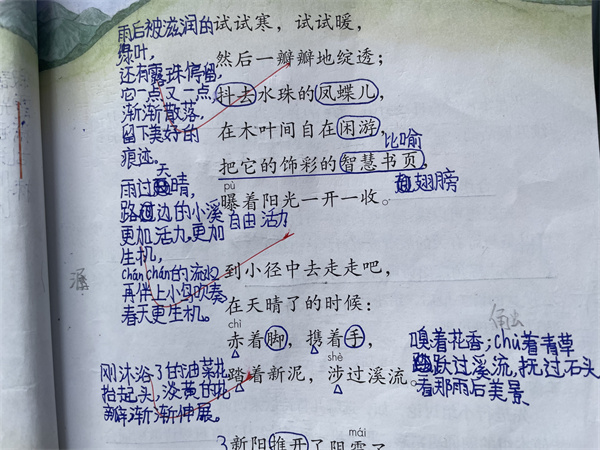 试试寒，试试暖，
然后一瓣瓣地绽透；
抖去水珠的凤蝶儿，
在木叶间自在闲游，
比喻
把它的饰彩的智慧书页，
翅膀
pù
曝着阳光一开一收。
自由 活力
到小径中去走走吧，
在天晴了的时候：
chì
赤着脚，携着手，
shè
踏着新泥，涉过溪流。
mái
3新阳推开了阴霾了
雨后被滋润的
绿叶，
还有露珠停留，
它一点又一点
渐渐散落，
留下美好的
痕迹。
雨过天晴，
路边的小溪
更加活力，更加
生机，
chán chán的流水
再伴上小鸟吹奏
春天更生机。
刚沐浴了的油菜花
抬起头，淡黄的花
瓣渐渐伸展。
嗅着花香；chù着青草
跃过溪流，抚过石头
看那雨后美景